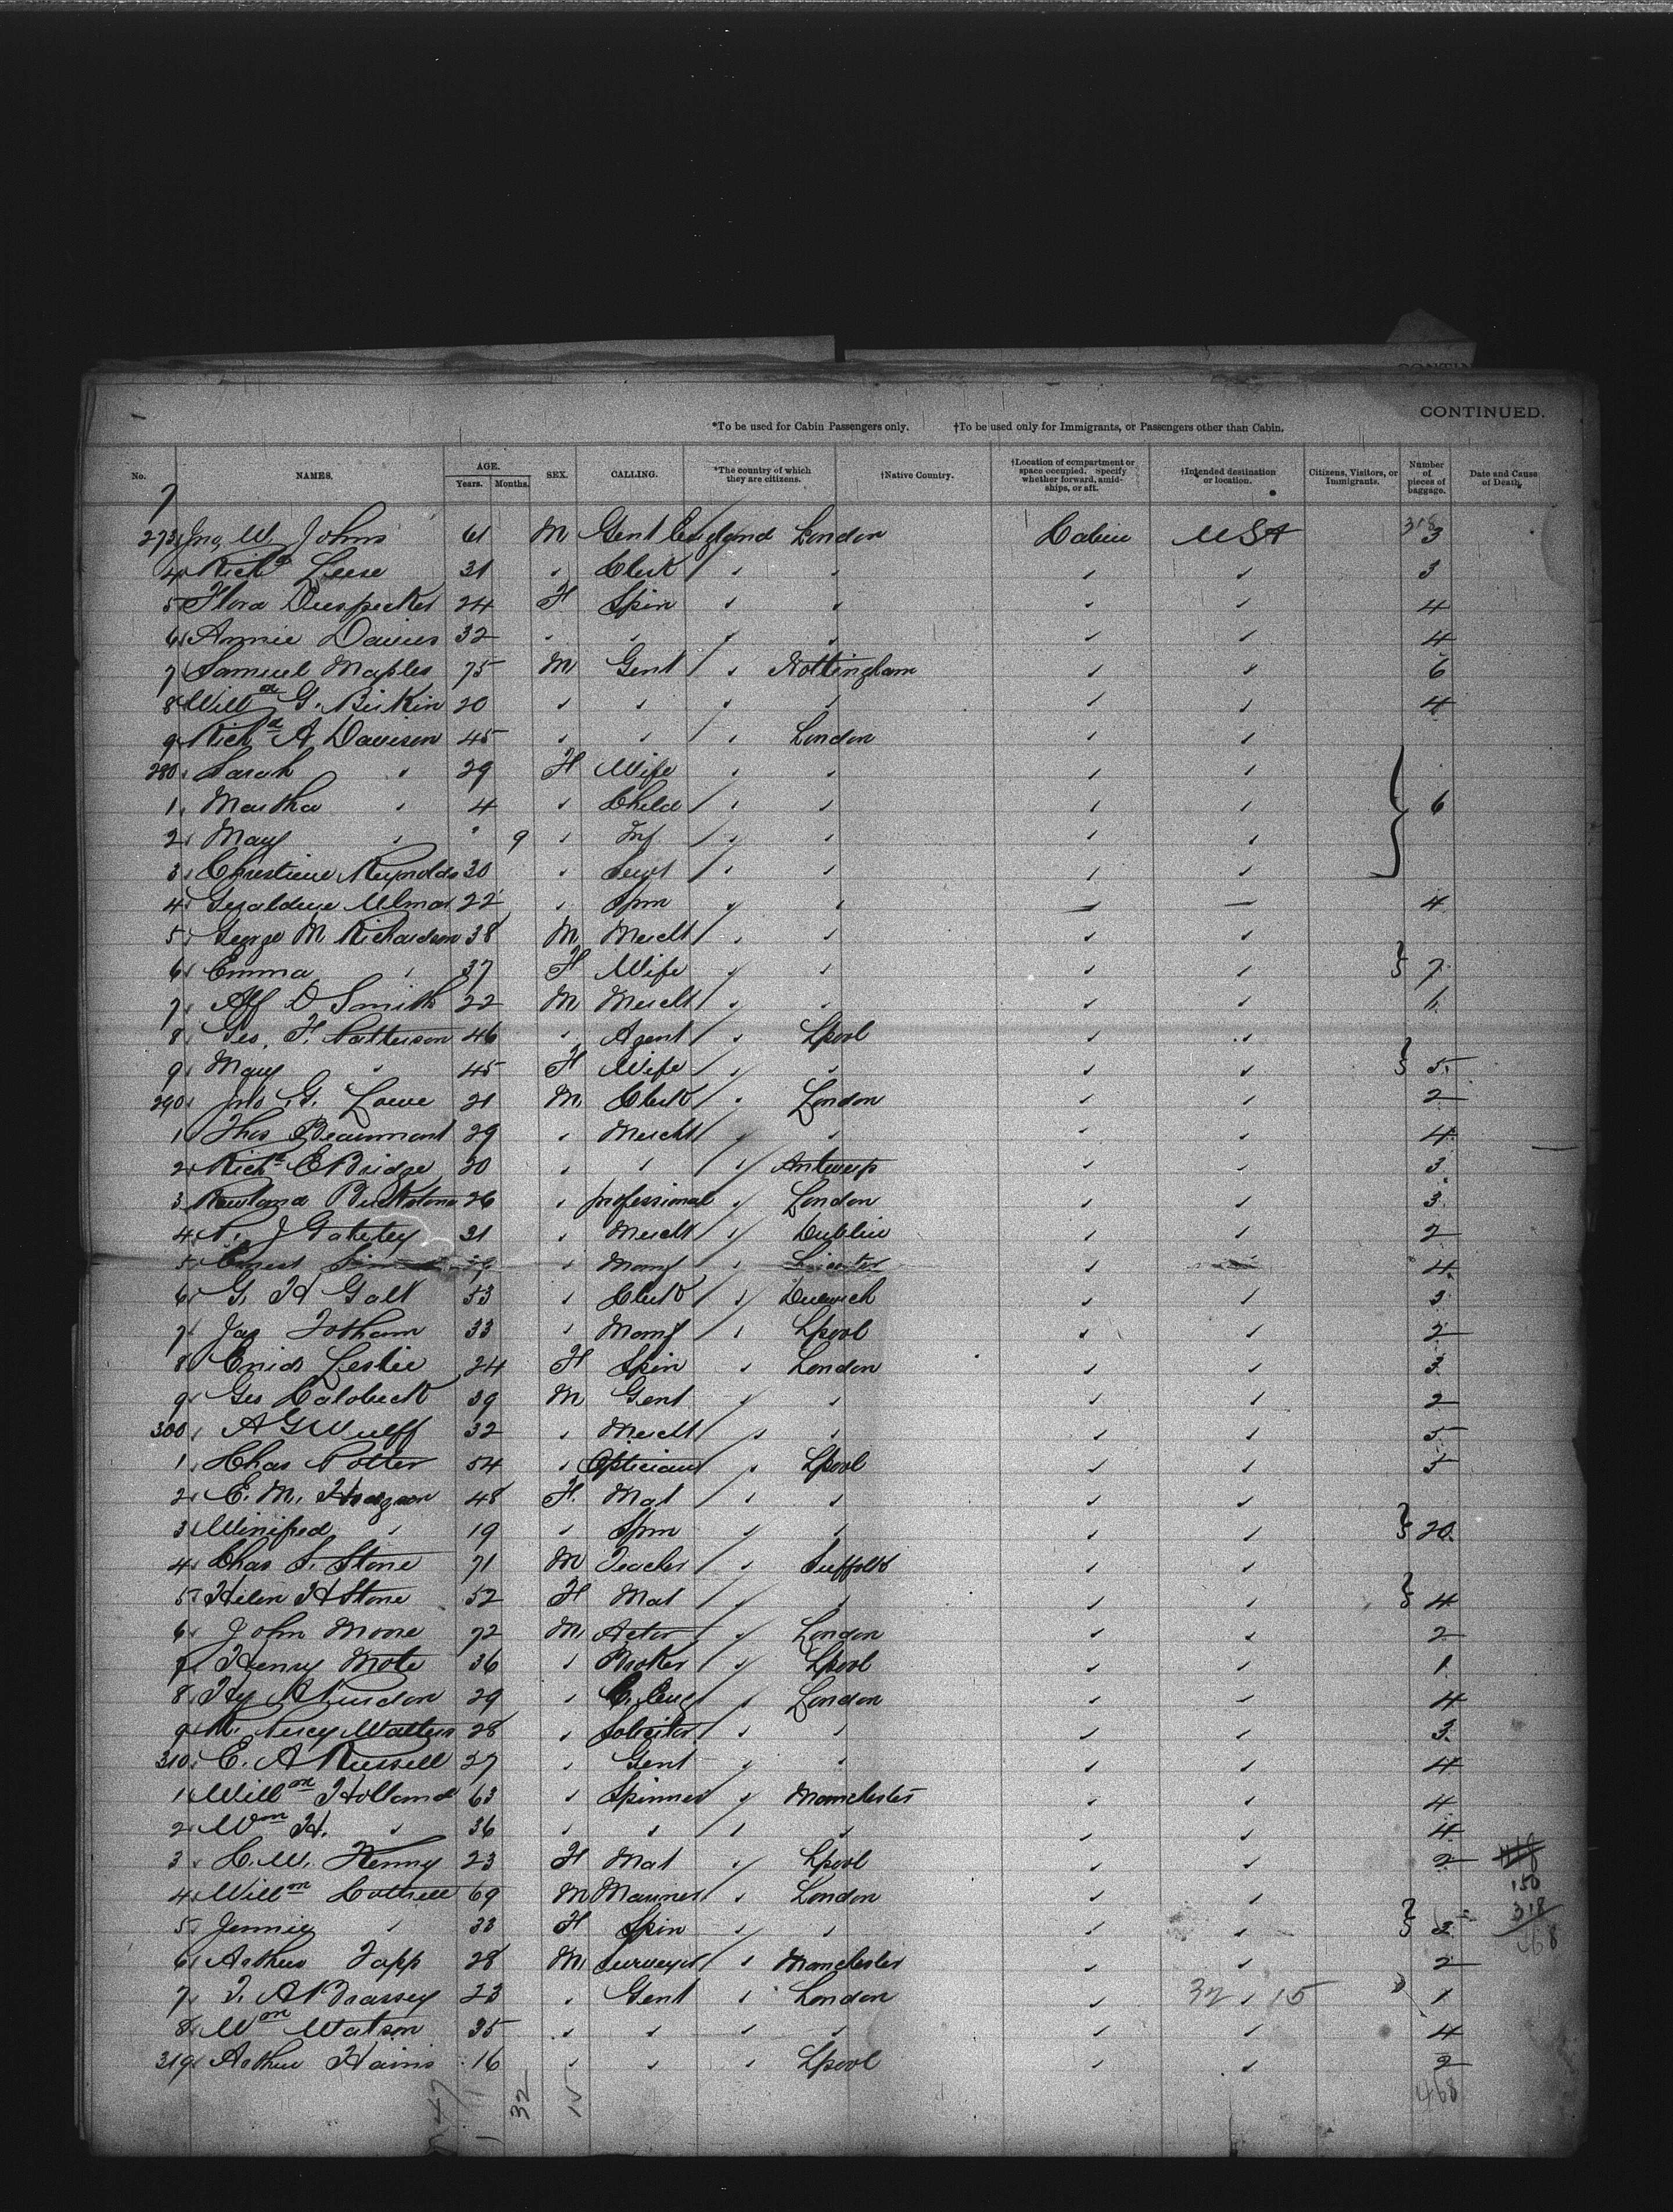 CONTIN
CONTINUED.
*To be used for Cabin Passengers only. †To be used only for Immigrants, or Passengers other than Cabin.
No. NAMES. AGE. Years. Months. SEX. CALLING. *The country of which they are citizens. †Native Country. †Location of compartment or space occupied. Specify whether forward, amidships, or aft. †Intended destination or location. Citizens, Visitors, or Immigrants. Number of pieces of baggage. Date and Cause of Death.
7
273 Jno, W. Johns 61 M Gent England London Cabin USA 318 3
4 Richd Leese 31 " Clerk " " " " 3
5 Flora 24 F Spin " " " " 4
6 Annie Davies 32 " " " " " " 4
7 Samuel Maples 75 M Gent " Nottingham " " 6
8 Willm G. Birkin 20 " " " " " " 4
9 Richd A Davison 45 " " " London " "
280 Sarah " 29 F Wife " " " "
1 Martha " 4 " Child " " " " 6
2 Mary " " 9 " Inf " " " "
3 Christine Reynolds 30 " Servt " " " "
4 Geraldine Ulmar 22 " Spin " " " " 4
5 George M Richardson 38 M Mercht " " " "
6 Emma " 37 F Wife " " " " 7
7 Alf D Smith 22 M Mercht " " " "
8 Geo. F. Patterson 46 " Agent " Lpool " "
9 Mary " 45 F Wife " " " " 5
290 Jno G. Lowe 21 M Clerk " London " " 2
1 Thos Beaumont 29 " Mercht " " " " 4
2 Richd E Bridge 20 " " " Antwerp " " 3
3 Rowland Buckstone 26 " professional " London " " 3
4 J Gateley 31 " Mercht " Dublin " " 2
5 Ernest " Manf " Leicester " " 4
6 G. H Galt 53 " Clerk " Dulwich " " 3
7 Jas Totham 33 " Manf " Lpool " " 2
8 Enid Leslie 24 F Spin " London " " 3
9 Geo Caldbeck 39 M Gent " " " " 2
300 A G Wulff 32 " Mercht " " " " 5
1 Chas Potter 54 " Optician " Lpool " " 5
2 E. M. Hodgson 48 F Mat " " " "
3 Winifred " 19 " Spin " " " " 20
4 Chas S. Stone 71 M Teacher " Suffolk " "
5 Helen H Stone 52 F Mat " " " " 4
6 John Moore 72 M Actor " London " " 2
7 Henry Mote 36 " Broker " Lpool " " 1
8 Hy A 29 " C. Eng " London " " 4
9 R. Percy Watters 28 " Solicitor " " " " 3
310 E. A Russell 27 " Gent " " " " 4
1 Willm Holland 63 " Spinner " Manchester " " 4
2 Wm H. " 36 " " " " " " 4
3 C. W. Kenny 23 F Mat " Lpool " " 2
150
4 Willm Cottrell 69 M Mariner " London " "
318
5 Jennie " 33 F Spin " " " " 3
468
6 Arthur Tapp 28 M Surveyor " Manchester " " 2
7 T. A Brassey 23 " Gent " London " 32 " 15 1
8 Wm Watson 35 " " " " " " 4
319 Arthur Harris 16 " " " Lpool " " 2
47 32 15 468